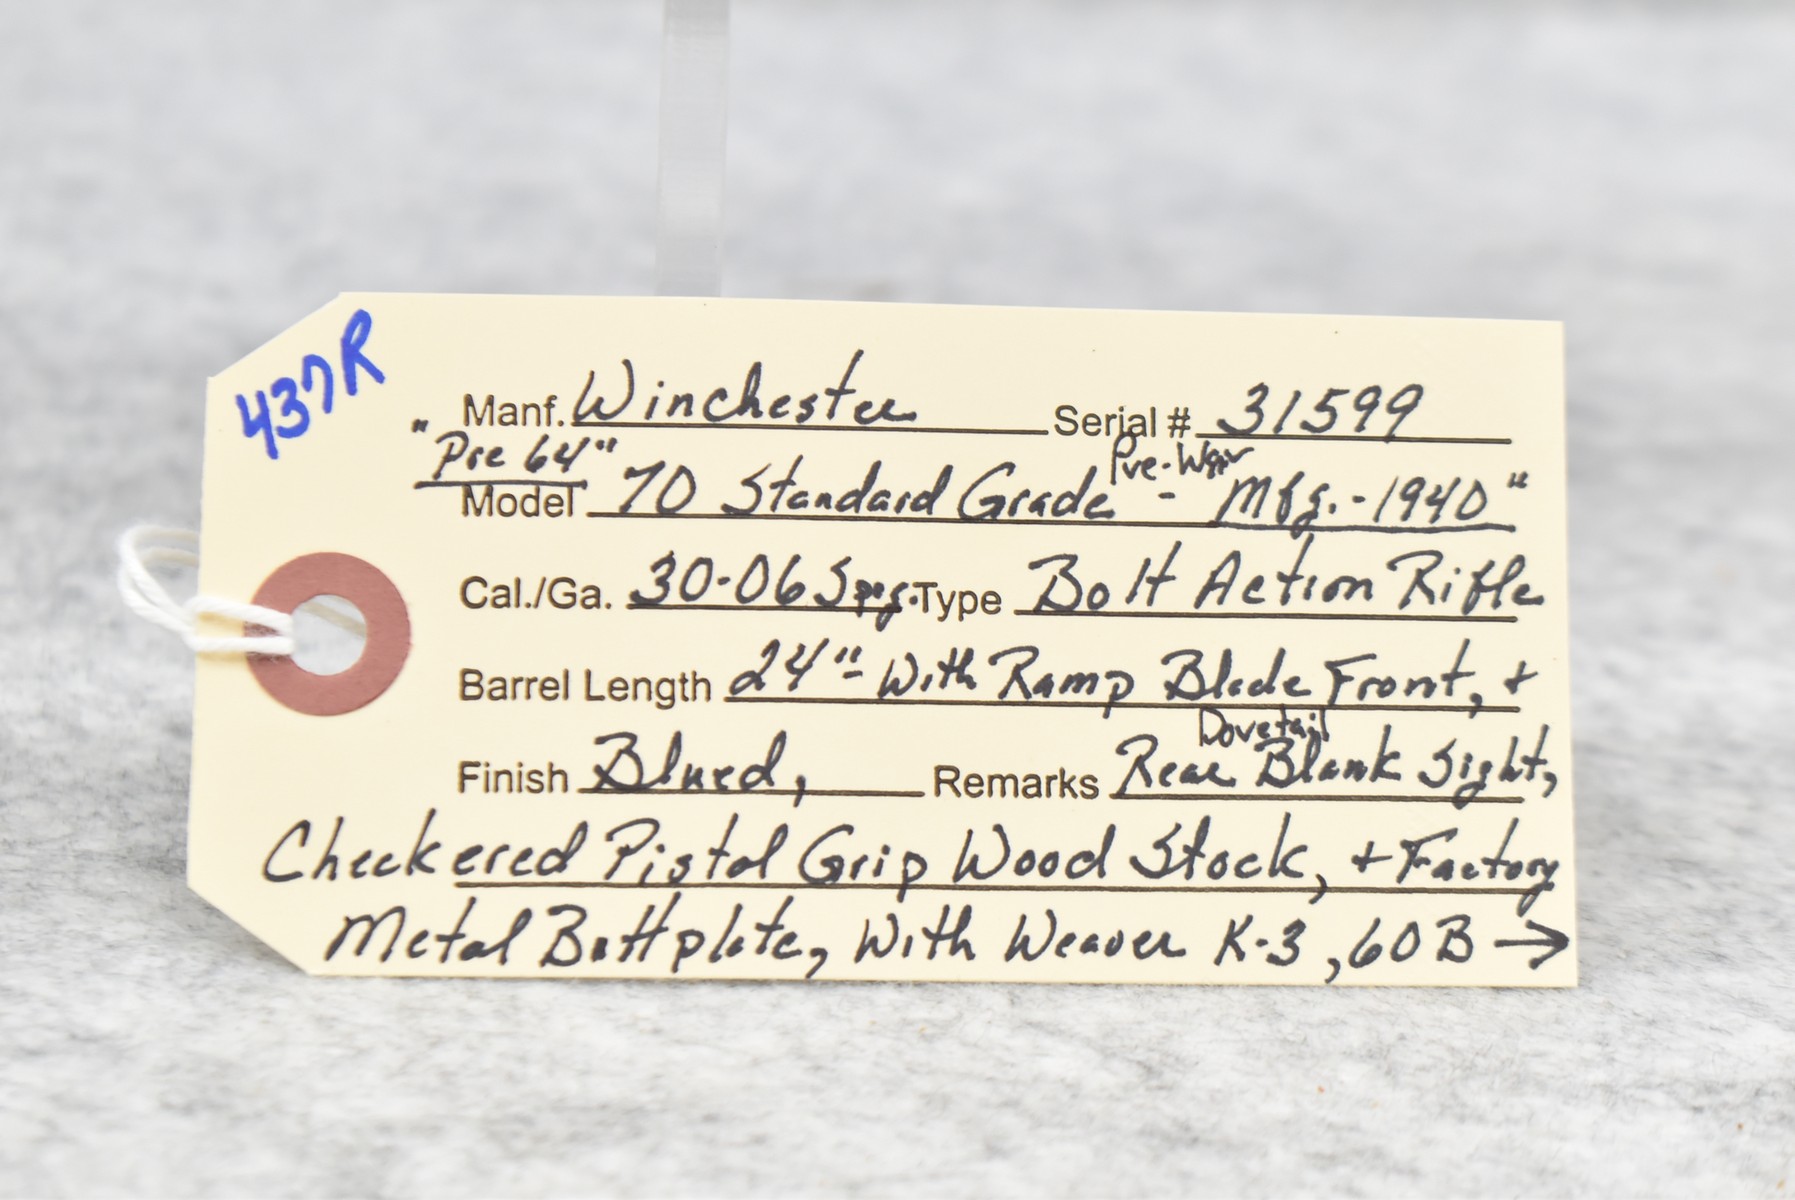 437R
Manf. Winchester Serial # 31599
"Pre 64" Pre-War
Model 70 Standard Grade - Mfg.-1940"
Cal./Ga. 30-06 Sprg. Type Bolt Action Rifle
Barrel Length 24"- With Ramp Blade Front, +
Dovetail
Finish Blued, Remarks Rear Blank Sight,
Checkered Pistol Grip Wood Stock, + Factory
Metal Buttplate, With Weaver K-3, 60B →